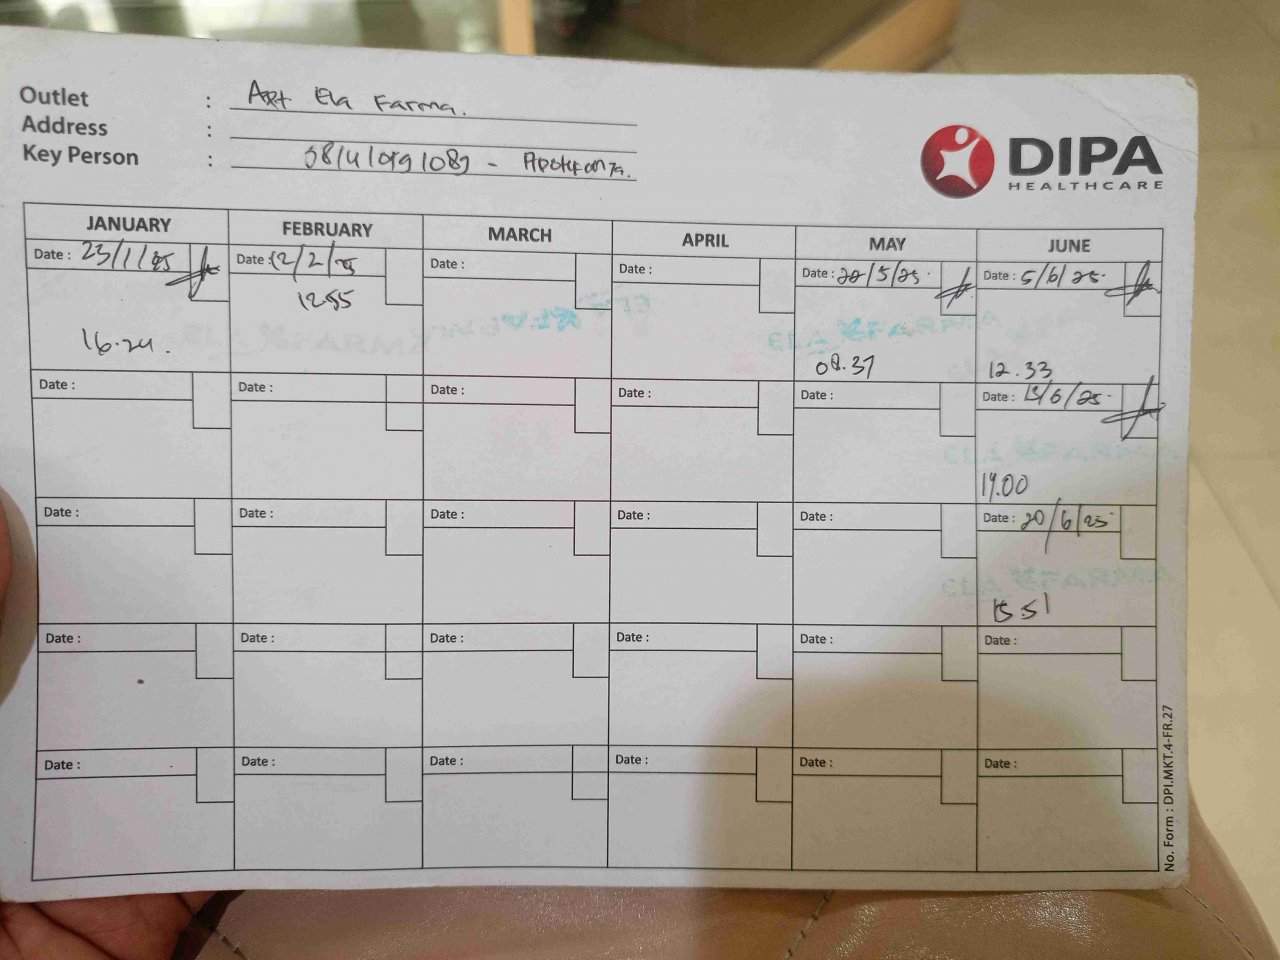 Outlet : Apt Ela Farma.
Address :
Key Person : - Apoteker
DIPA
HEALTHCARE
JANUARY FEBRUARY MARCH APRIL MAY JUNE
Date : 23/1/25 Date : 12/2/25 Date : Date : Date : 22/5/25. Date : 5/6/25.
16.24. 1255 08.37 12.33
ELA FARMA ELA FARMA
Date : Date : Date : Date : Date : Date : 13/6/25.
19.00
ELA FARMA
Date : Date : Date : Date : Date : Date : 20/6/25
15.51
ELA FARMA
Date : Date : Date : Date : Date : Date :
Date : Date : Date : Date : Date : Date :
No. Form : DPI.MKT.4-FR.27